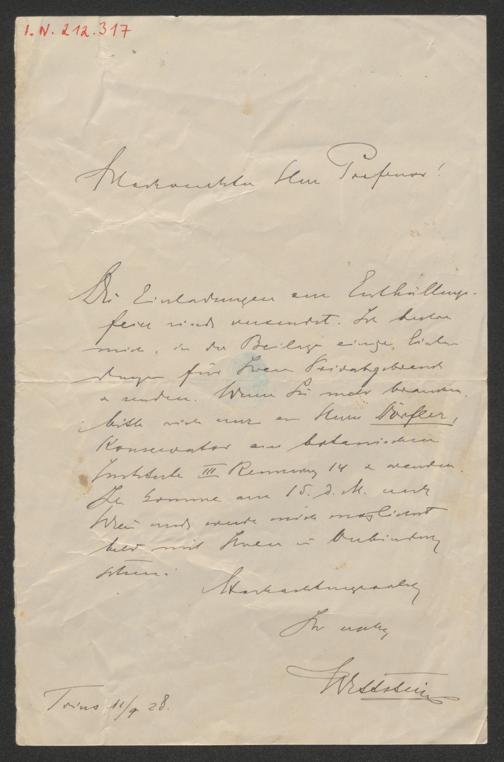 I. N. 212.317
Hochverehrter Herr Professor!
Die Einladungen zur Enthüllungs-
feier sind versendet. Ich beehre
mich, in der Beilage einige Einla-
dungen für Ihren Privatgebrauch
zu senden. Wenn Sie mehr brauchen,
bitte sich nur an Herrn Dörfler,
Konservator am botanischen
Institute III Rennweg 14 zu wenden.
Ich komme am 15. d. M. nach
Wien und werde mich möglichst
bald mit Ihnen in Verbindung
setzen.
Hochachtungsvollst
Ihr
Wettstein
Trins 11/9 28.